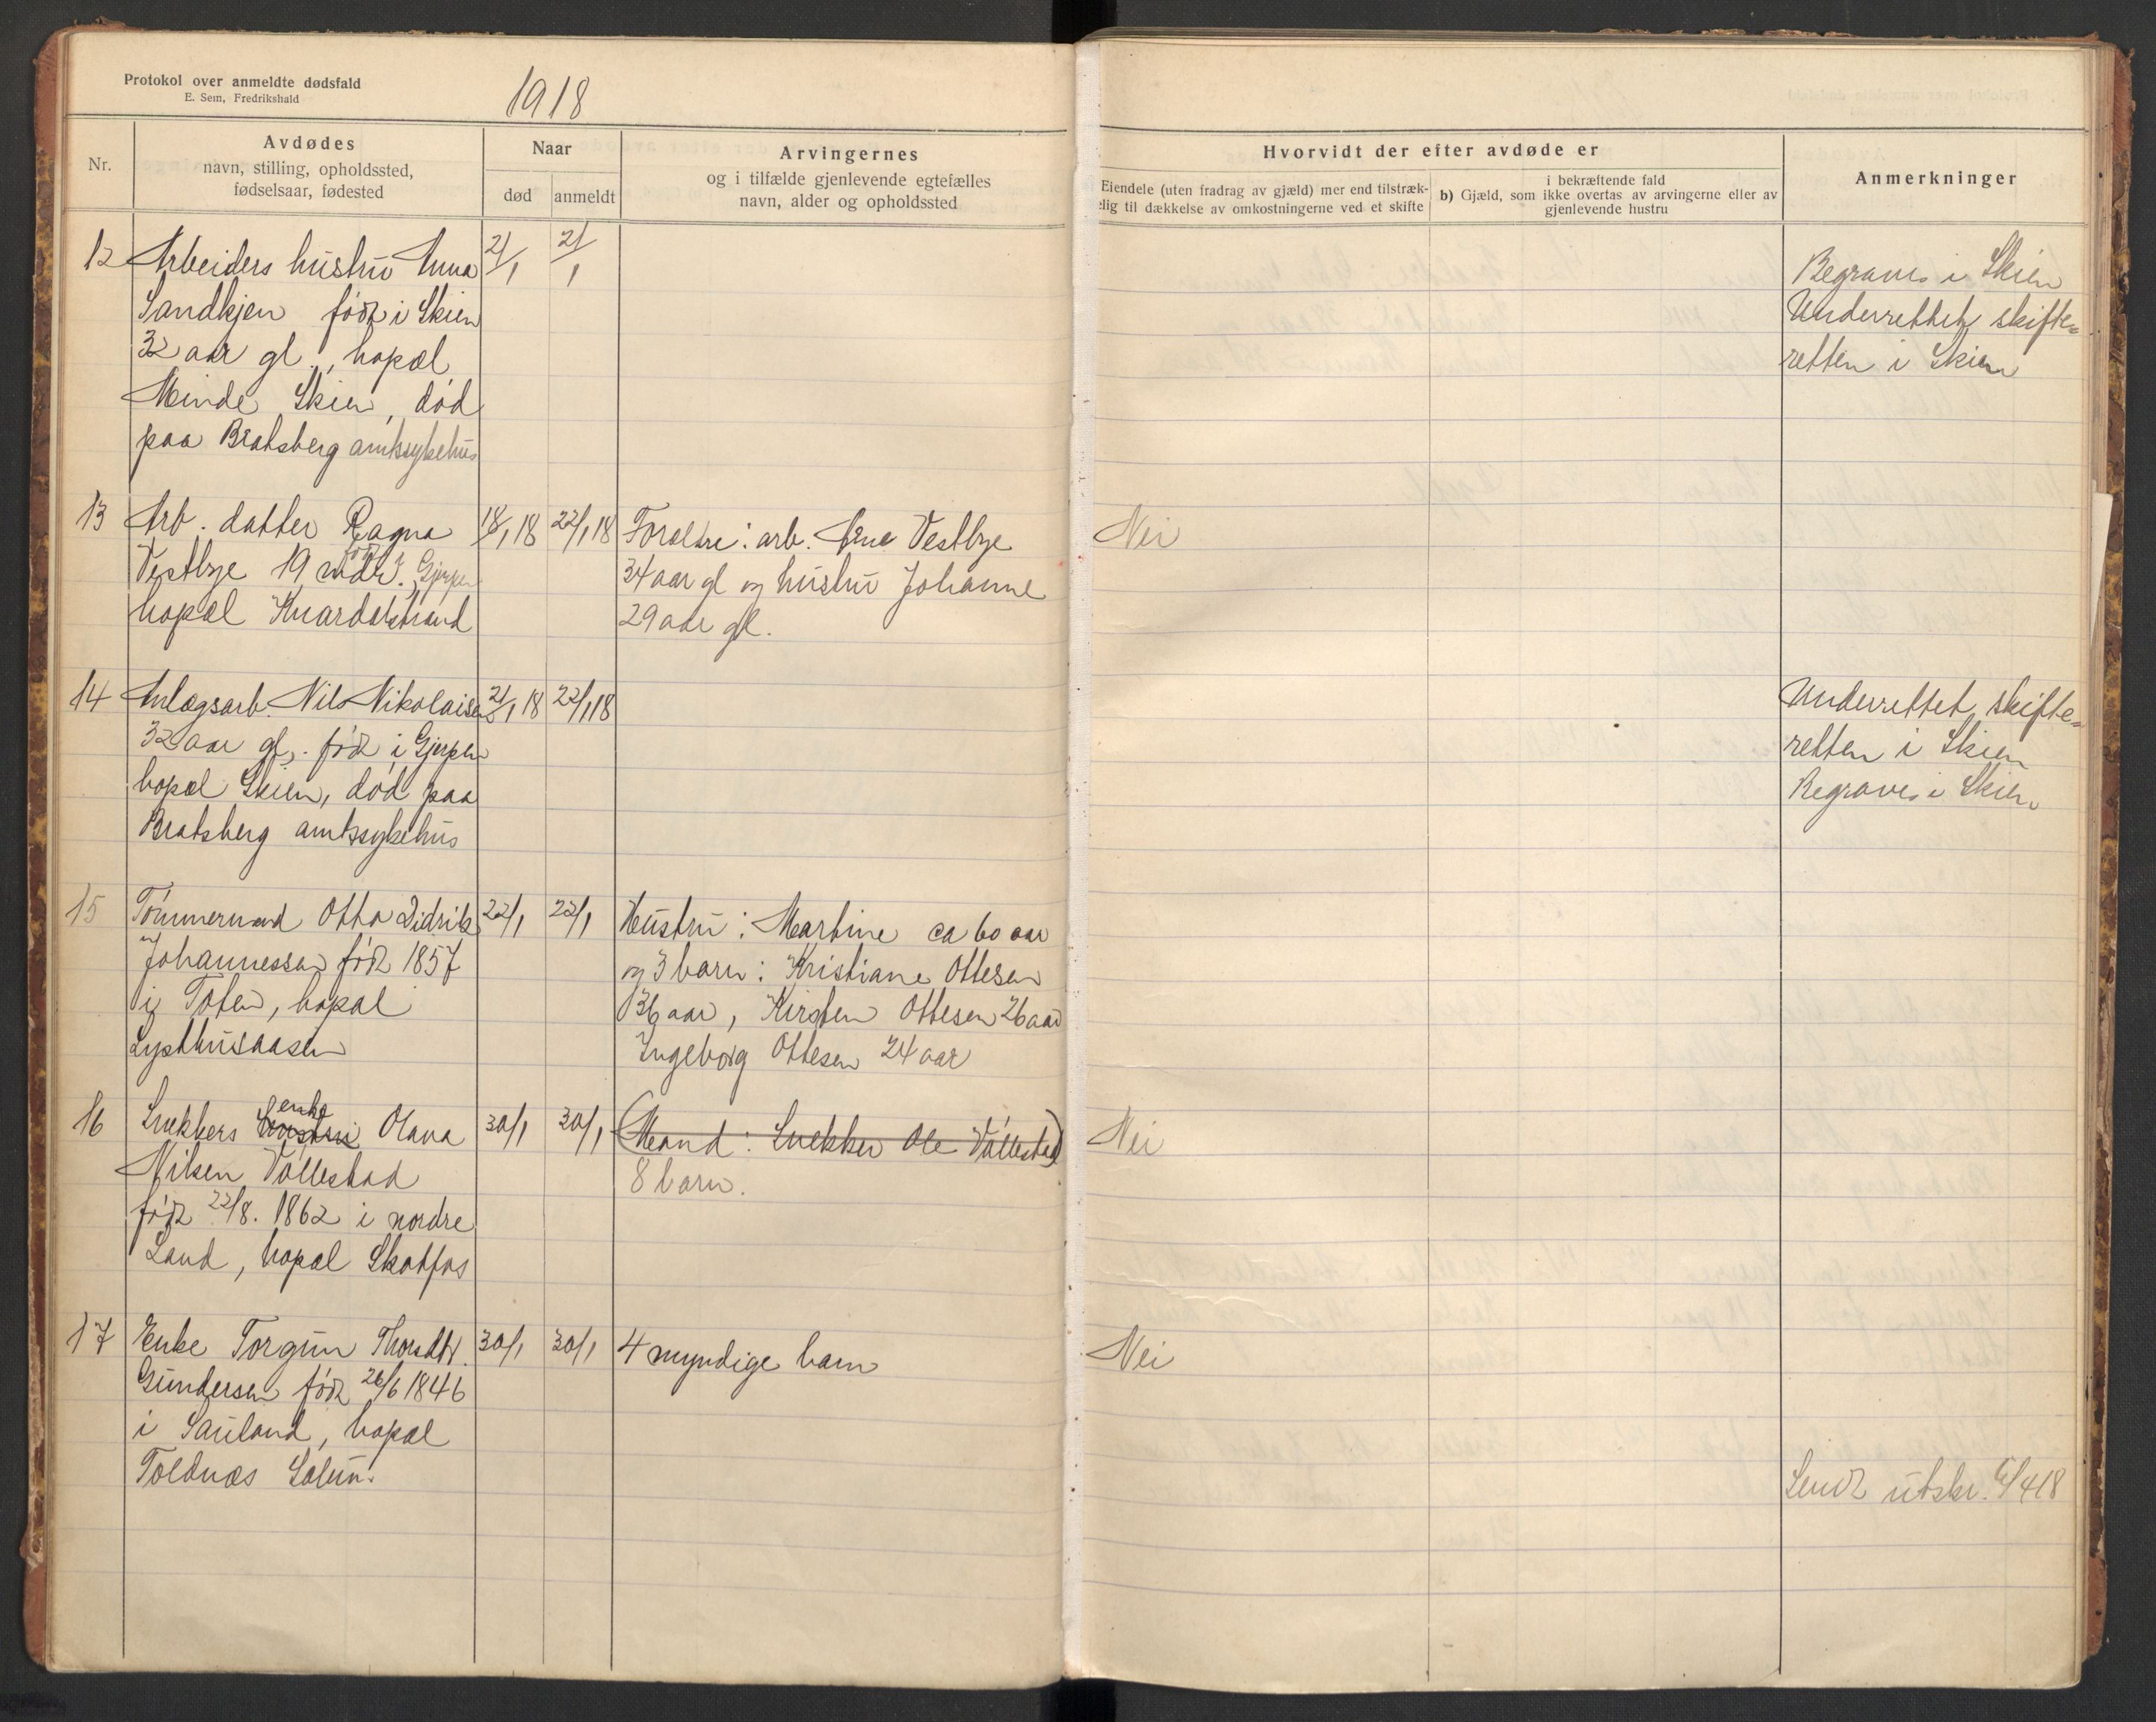 Protokol over anmeldte dødsfald
E. Sem, Fredrikshald
1918
Nr.
Avdødes
navn, stilling, opholdssted,
fødselsaar, fødested
Naar
død
anmeldt
Arvingernes
og i tilfælde gjenlevende egtefælles
navn, alder og opholdssted
Hvorvidt der efter avdøde er
Eiendele (uten fradrag av gjæld) mer end tilstræk-
elig til dækkelse av omkostningerne ved et skifte
i bekræftende fald
b) Gjæld, som ikke overtas av arvingerne eller av
gjenlevende hustru
Anmerkninger
12 Arbeiders hustru Anna 21/1 21/1
Sandkjen født i Skien
32 aar gl., bopæl
Minde Skien, død
paa Bratsberg amtssykehus
Begraves i Skien
Underrettet skifte=
retten i Skien
13 Arb. datter Ragna 18/1 18 22/1 18 Forældre: arb. Arne Vestbye Nei
født i
Vestbye 19 mdr. Gjerpen 34 aar gl og hustru Johanne
bopæl Knardalstrand 29 aar gl.
14 Anlægsarb. Nils Nikolaisen 21/1 18 22/1 18 Underrettet skifte=
32 aar gl,. født i Gjerpen retten i Skien
bopæl Skien, død paa Begraves i Skien
Bratsberg amtssykehus
15 Tømmermand Otto Didrik 22/1 22/1 Hustru: Martine ca 60 aar
Johannessen født 1857 og 3 barn: Kristiane Ottesen
i Toten, bopæl 36 aar, Kirsten Ottesen 26 aar
Lysthusaasen Ingeborg Ottesen 24 aar
enke
16 Snekkers hustru Olava 30/1 30/1 (Mand: Snekker Ole Vållestad) Nei
Nilsen Vållestad 8 barn.
født 22/8. 1862 i nordre
Land, bopæl Skotfos
17 Enke Torgun Thorsdtr. 30/1 30/1 4 myndige barn Nei
Gundersen født 26/6 1846
i Sauland, bopæl
Toldnæs Solum.
Sendt utskr. 6/4 18